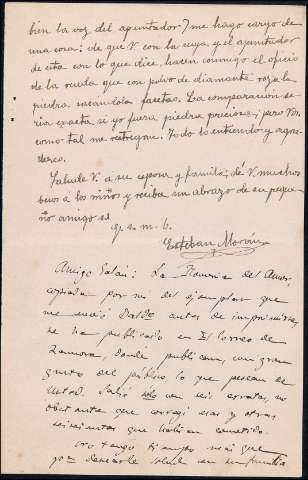 bien la voz del apuntador) me hago cargo de
una cosa: de que V. con la suya y el apuntador
de esta con lo que dice, hacen conmigo el oficio
de la rueda que con polvo de diamante roza la
piedra sacandola facetas. La comparación se-
ria exacta si yo fuera piedra preciosa; pero Vds.
como tal me restregan. Todo lo entiendo y agra-
dezco.
Salude V. a su esposa y familia; dé V. muchos
besos a los niños y reciba un abrazo de su peque-
ño amigo
q. s. m. b.
Esteban Morán
Amigo Galán: La del Amor,
copiada por mi del ejemplar que
me envió antes de imprimirse,
se ha publicado en El Correo de
Zamora, donde publican, con gran
gusto del público lo que
Usted. Salió sólo con seis erratas, no
obstante que corregí esas y otras
seiscientas que habían cometido.
No tengo tiempo más que
para desearle salud en su familia